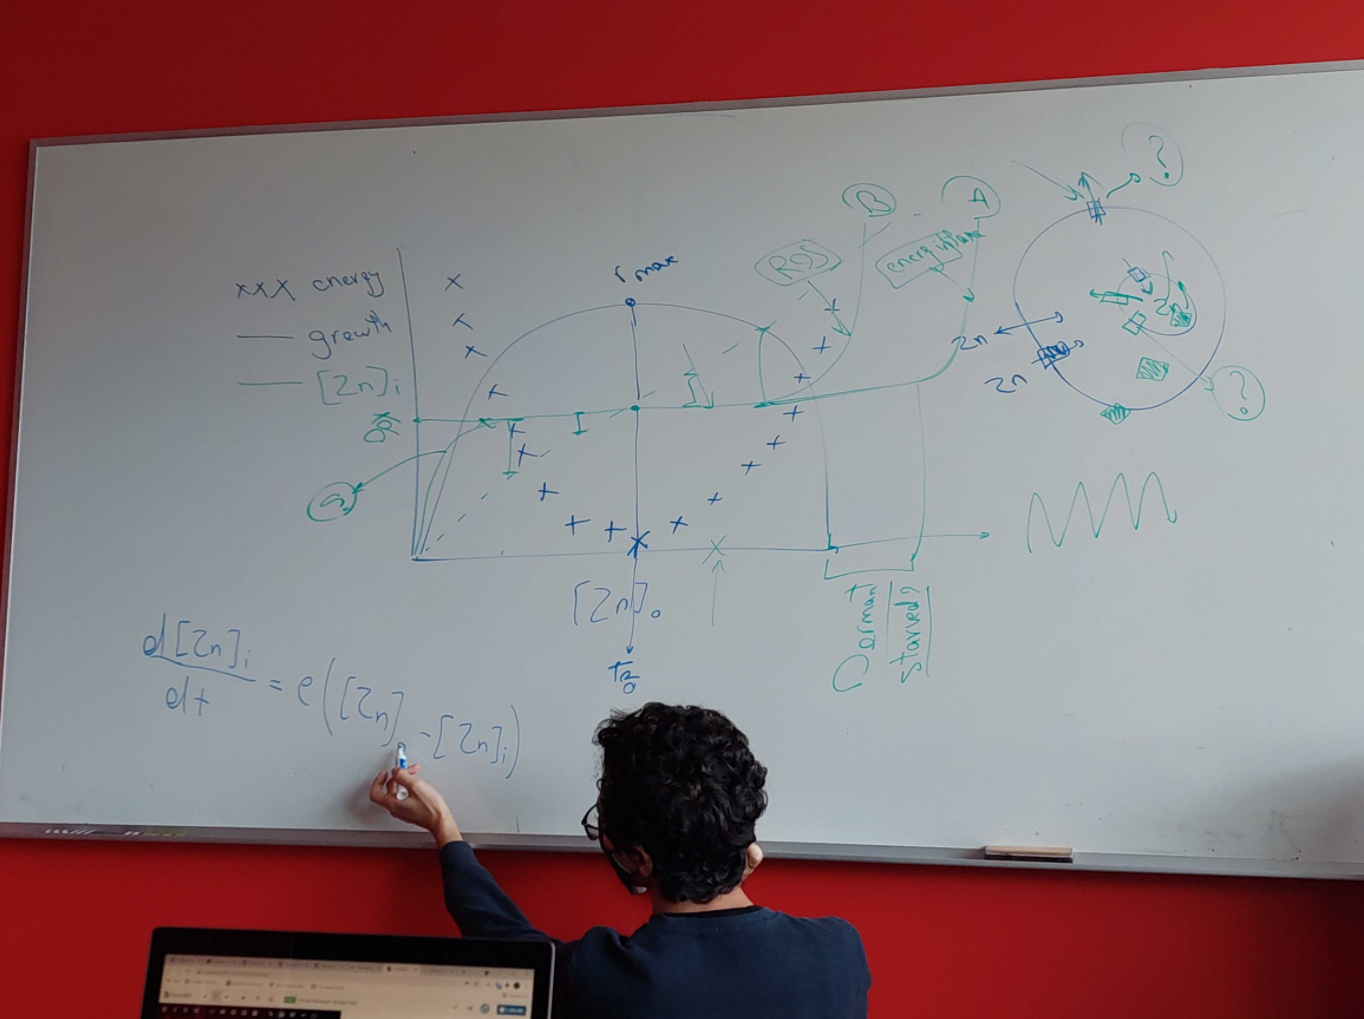 xxx energy
growth
[Zn]i
r max
ROS
B
A
energy
?
Zn
Zn
Zn
?
[Zn]o
Dormant
Starved?
d[Zn]i / dt = e([Zn]o - [Zn]i)